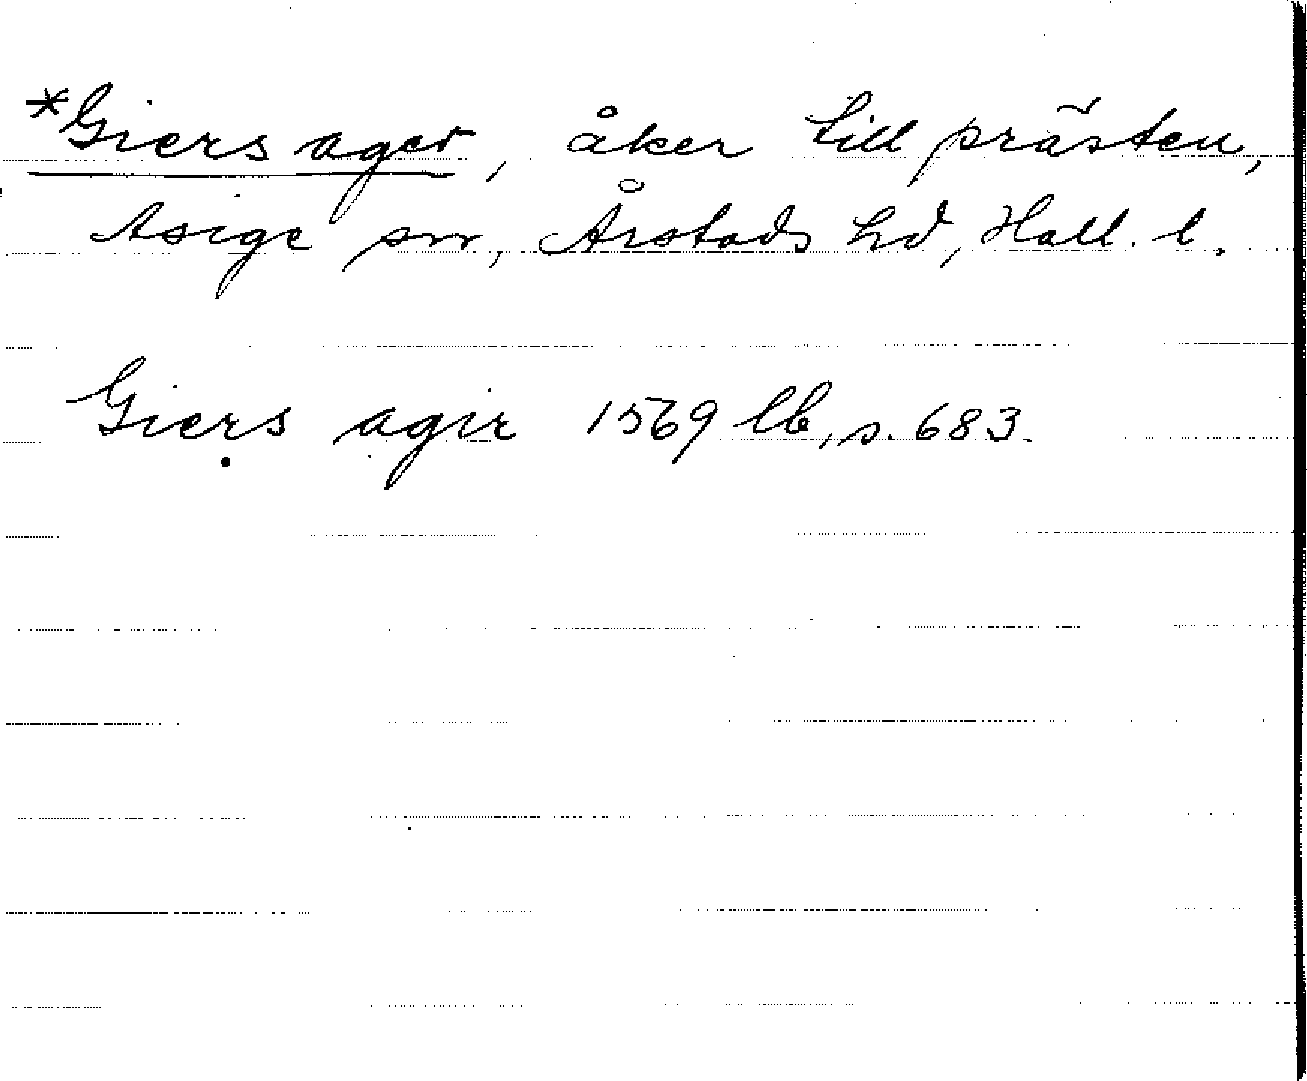 *Giers ager, åker till prästen,
Asige sn, Årstads hd, Hall. l.
Giers agir 1569 lb, s. 683.